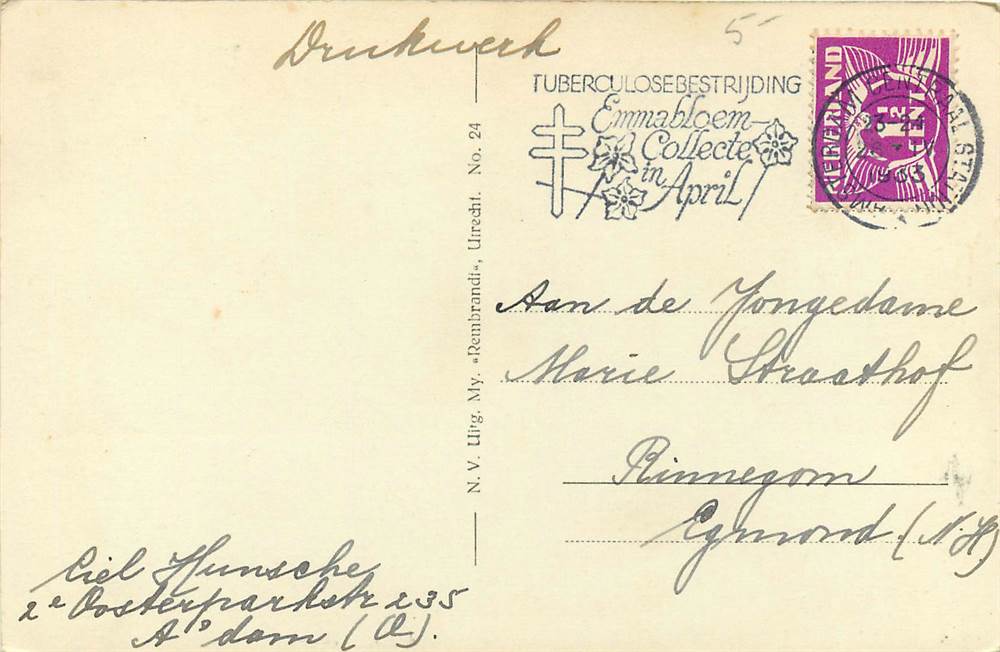 Drukwerk
5-
TUBERCULOSEBESTRIJDING
Emmabloem-
Collecte
in
April
NEDERLAND
1½
CENT
CENTRAAL STATION
23-24
IV
1933
N. V. Uitg. My. «Rembrandt», Utrecht. No. 24
Aan de Jongedame
Marie Straathof
Rinnegom
Egmond. (N.H)
Ciel Hunsche
2e Oosterparkstr 235
A'dam (O).